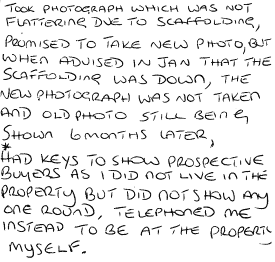 TOOK PHOTOGRAPH WHICH WAS NOT
FLATTERING DUE TO SCAFFOLDING,
PROMISED TO TAKE NEW PHOTO, BUT
WHEN ADVISED IN JAN THAT THE
SCAFFOLDING WAS DOWN, THE
NEW PHOTOGRAPH WAS NOT TAKEN
AND OLD PHOTO STILL BEING
SHOWN 6 MONTHS LATER,
*
HAD KEYS TO SHOW PROSPECTIVE
BUYERS AS I DID NOT LIVE IN THE
PROPERTY BUT DID NOT SHOW ANY
ONE ROUND, TELEPHONED ME
INSTEAD TO BE AT THE PROPERTY
MYSELF.